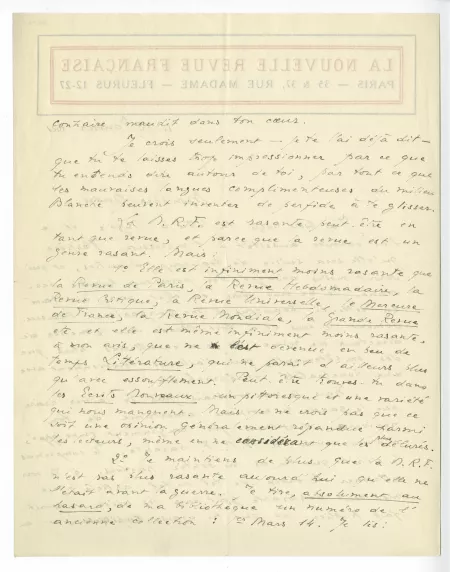 LA NOUVELLE REVUE FRANÇAISE
PARIS — 35 & 37, RUE MADAME — FLEURUS 12-27
contraire, maudit dans ton cœur.
Je crois seulement — je te l'ai déjà dit —
que tu te laisses trop impressionner par ce que
tu entends dire autour de toi, par tout ce que
les mauvaises langues complimenteuses du milieu
Blanche peuvent inventer de perfide à te glisser.
La N.R.F. est rasante peut-être en
tant que revue, et parce que la revue est un
genre rasant. Mais:
1º Elle est infiniment moins rasante que
la Revue de Paris, la Revue Hebdomadaire, la
Revue Critique, la Revue Universelle, le Mercure
de France, la Revue Mondiale, la Grande Revue
etc. et elle est même infiniment moins rasante,
à mon avis, que ne l'est devenue en peu de
temps Littérature, qui ne paraît d'ailleurs plus
qu'avec essoufflement. Peut-être trouves-tu dans
les Ecrits Nouveaux un pittoresque et une variété
qui nous manquent. Mais je ne crois pas que ce
soit une opinion généralement répandue parmi
les lecteurs, même en ne considérant que les plus délurés.
2º Je maintiens de plus que la N.R.F.
n'est pas plus rasante aujourd'hui qu'elle ne
l'était avant la guerre. Je tire, absolument au
hasard, de ma bibliothèque un numéro de l'
ancienne collection : Mars 14. Je lis: